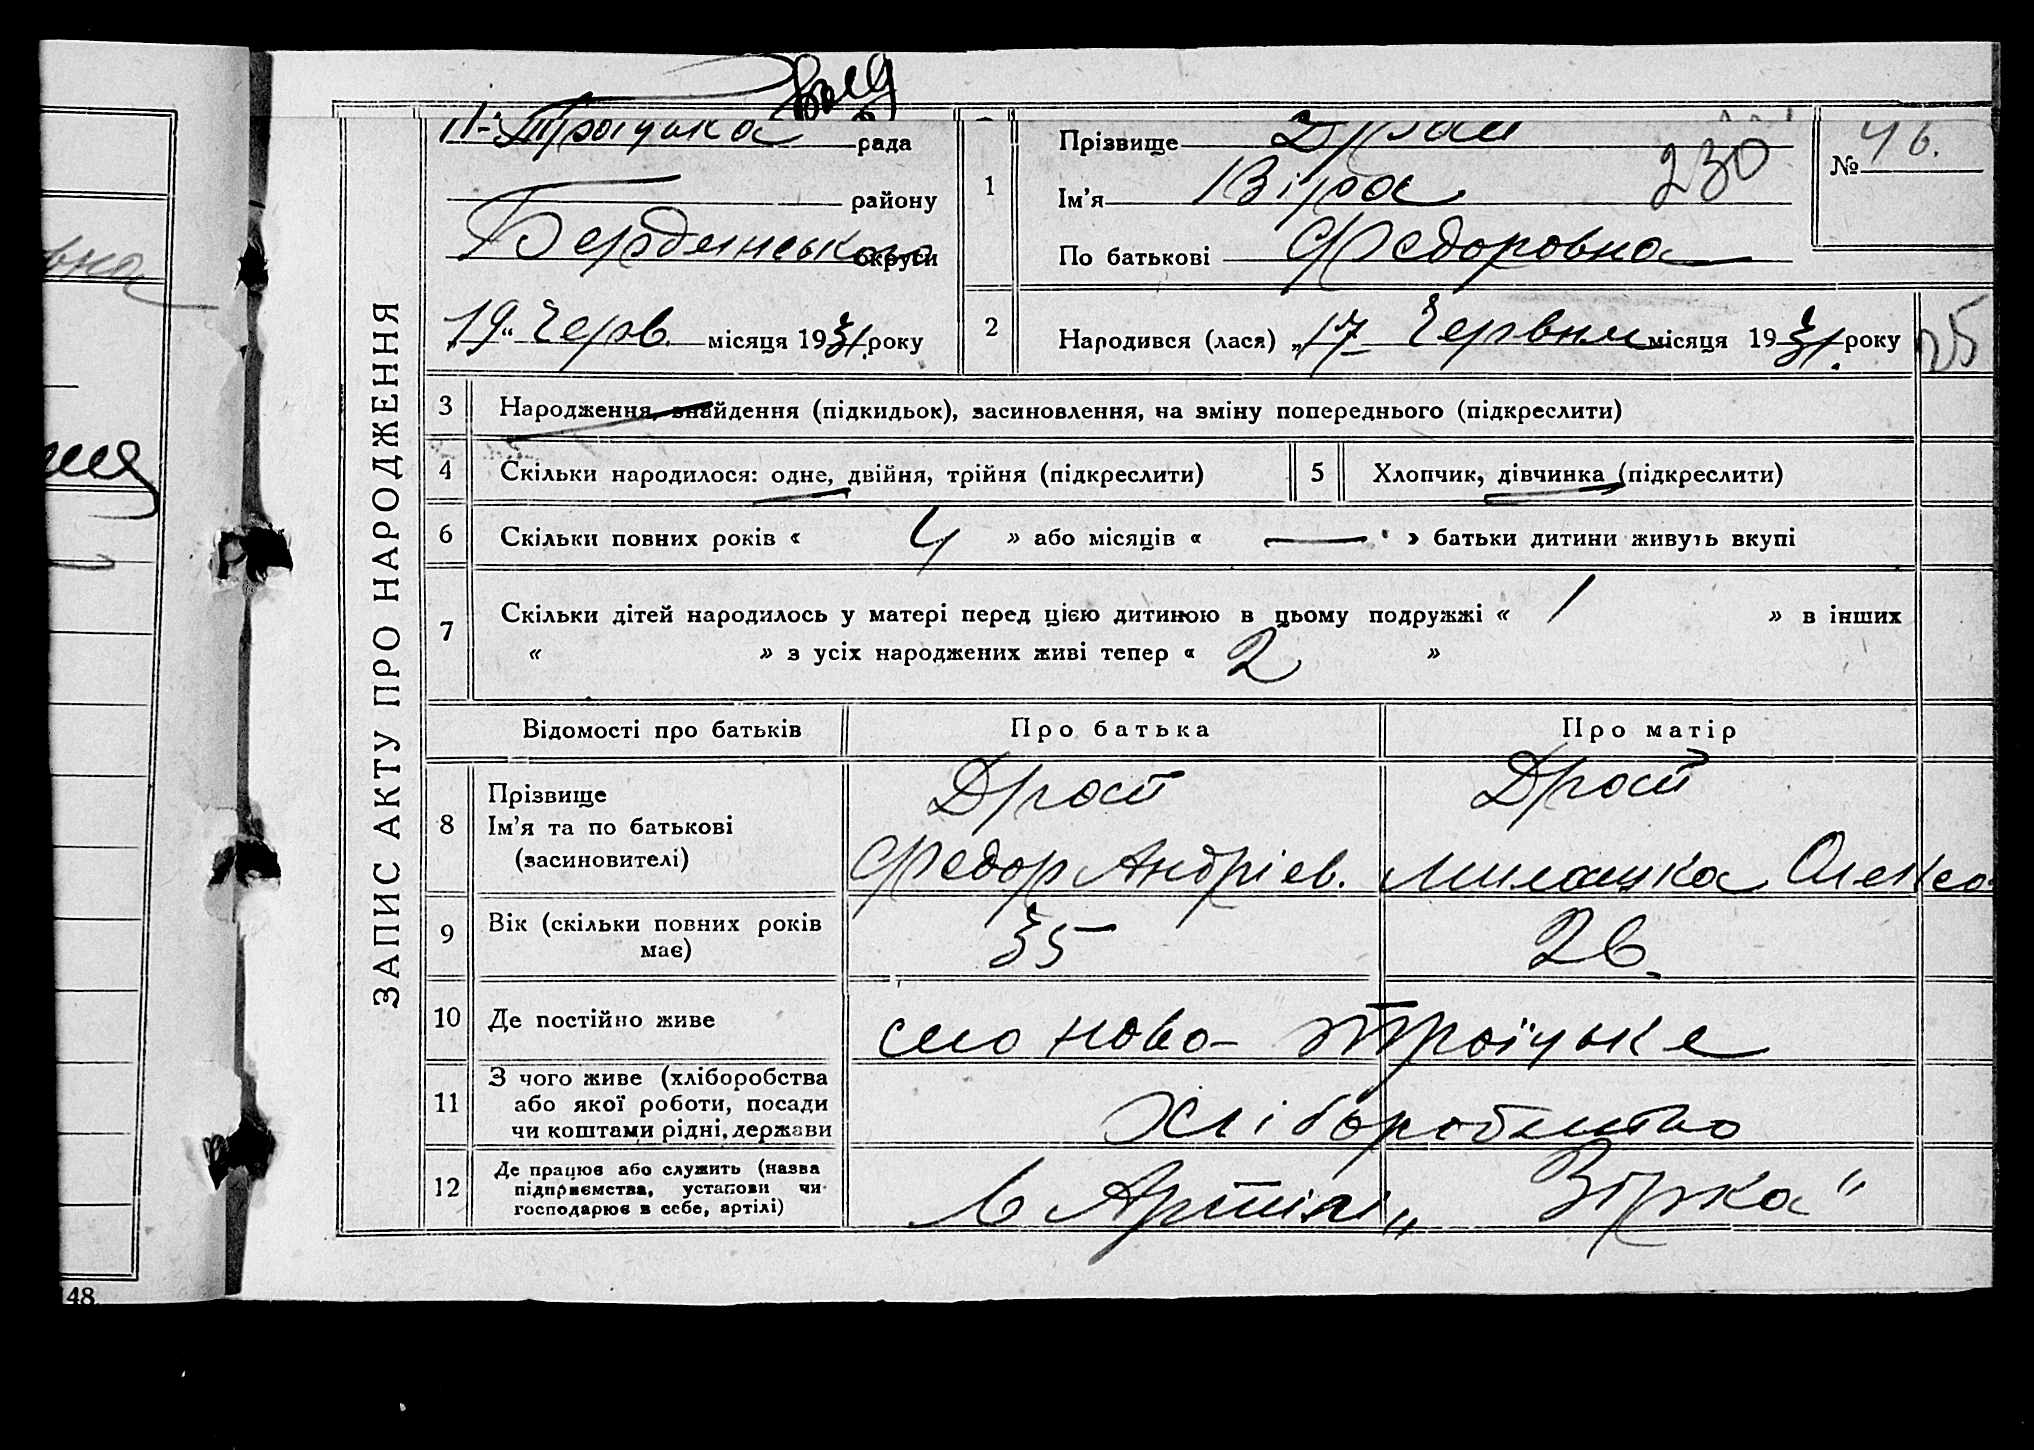 ЗАПИС АКТУ ПРО НАРОДЖЕННЯ
Н-Троіцька рада
району
Бердянського округи
„19“ Черв. місяця 1931. року
1
Прізвище
Ім'я Віра 230
По батькові Федоровна
№ 46.
2
Народився (лася) „17 Червня місяця 1931. року
25
3 Народження, знайдення (підкидьок), засиновлення, на зміну попереднього (підкреслити)
4 Скільки народилося: одне, двійня, трійня (підкреслити)
5 Хлопчик, дівчинка (підкреслити)
6 Скільки повних років « 4 » або місяців « — » батьки дитини живуть вкупі
7 Скільки дітей народилось у матері перед цією дитиною в цьому подружжі « 1 » в інших
« » з усіх народжених живі тепер « 2 »
Відомості про батьків Про батька Про матір
8 Прізвище
Ім'я та по батькові
(засиновителі)
Дрост
Федор Андрієв.
Дрост
Милашка Олекса
9 Вік (скільки повних років
має)
35 26.
10 Де постійно живе село Ново-Троїцьке
11 З чого живе (хліборобства
або якої роботи, посади
чи коштами рідні, держави
Хліборобство
12 Де працює або служить (назва
підприємства, установи чи
господарює в себе, артілі)
в Артілі „Зірка“
вна
48